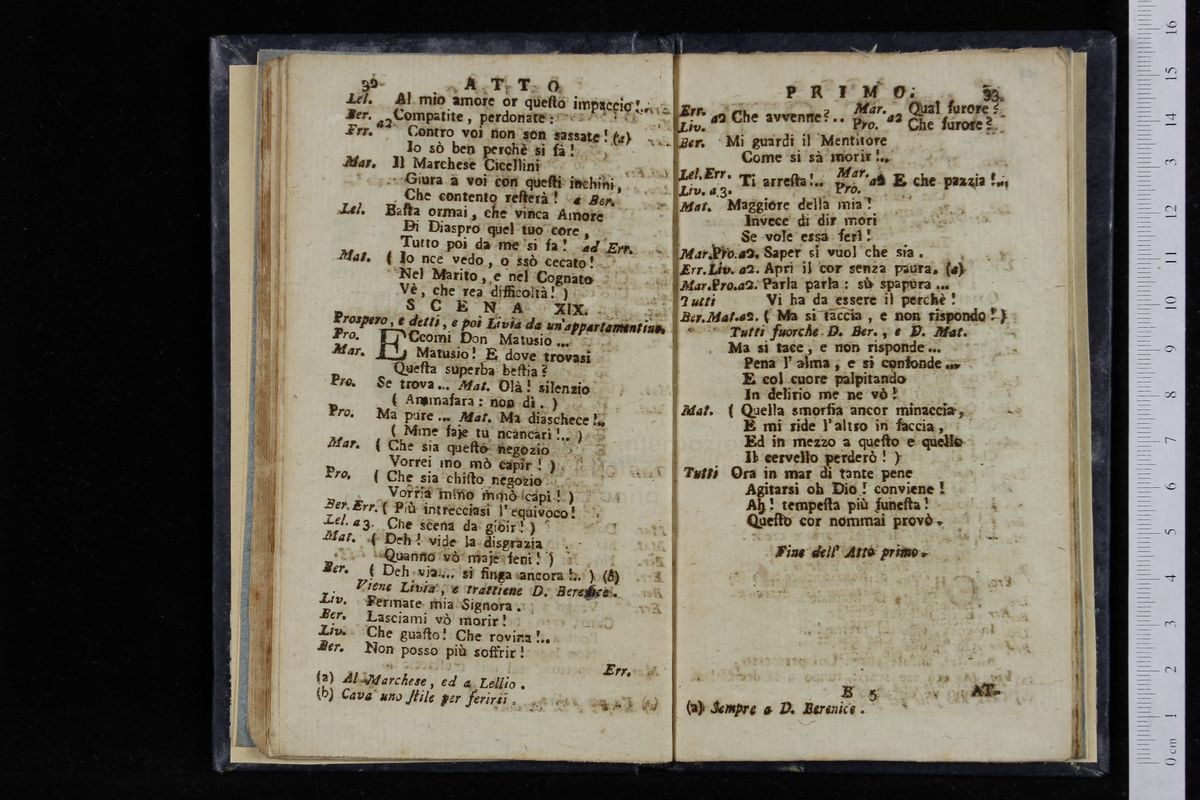 32 ATTO
Lel. Al mio amore or queſto impaccio!..
Ber. a2 Compatite, perdonate:
Err. Contro voi non son sassate! (a)
Io sò ben perchè si fà!
Mar. Il Marchese Cicellini
Giura a voi con queſti inchini,
Che contento reſterà! a Ber.
Lel. Baſta ormai, che vinca Amore
Di Diaspro quel tuo core,
Tutto poi da me si fa! ad Err.
Mat. ( Io nce vedo, o ssò cecato!
Nel Marito, e nel Cognato
Vè, che rea difficoltà! )
SCENA XIX.
Prospero, e detti, e poi Livia da un'appartamentino.
Pro. ECcomi Don Matusio...
Mar. Matusio! E dove trovasi
Queſta superba beſtia?
Pro. Se trova... Mat. Olà! silenzio
( Ammafara: non dì. )
Pro. Ma pure... Mat. Ma diaschece!..
( Mme faje tu ncancari!.. )
Mar. ( Che sia queſto negozio
Vorrei mo mò capir! )
Pro. ( Che sia chiſto negozio
Vorria mmo mmò capì! )
Ber. Err. ( Più intrecciasi l'equivoco!
Lel. a 3. Che scena da gioir! )
Mat. ( Deh! vide la disgrazia
Quanno vò maje fenì! )
Ber. ( Deh via... si finga ancora!.. ) (b)
Viene Livia, e trattiene D. Berenice.
Liv. Fermate mia Signora.
Ber. Lasciami vò morir!
Liv. Che guaſto! Che rovina!..
Ber. Non posso più soffrir!
Err.
(a) Al Marchese, ed a Lellio.
(b) Cava uno ſtile per ferirsi.
PRIMO. 33
Err. Liv. a2 Che avvenne?.. Mar. Pro. a2 Qual furore? Che furore?
Ber. Mi guardi il Mentitore
Come si sà morir!..
Lel. Err. Liv. a 3. Ti arreſta!.. Mar. Pro. a2 E che pazzia!..
Mat. Maggiore della mia!
Invece di dir mori
Se vole essa ferì!
Mar. Pro. a2. Saper si vuol che sia.
Err. Liv. a2. Apri il cor senza paura. (a)
Mar. Pro. a2. Parla parla: sù spapura...
Tutti Vi ha da essere il perchè!
Ber. Mat. a2. ( Ma si taccia, e non rispondo! )
Tutti fuorche D. Ber., e D. Mat.
Ma si tace, e non risponde...
Pena l'alma, e si confonde...
E col cuore palpitando
In delirio me ne vò!
Mat. ( Quella smorfia ancor minaccia,
E mi ride l'altro in faccia,
Ed in mezzo a queſto e quello
Il cervello perderò! )
Tutti Ora in mar di tante pene
Agitarsi oh Dio! conviene!
Ah! tempeſta più funeſta!
Queſto cor nommai provò.
Fine dell' Atto primo.
B 5 AT-
(a) Sempre a D. Berenice.
0 cm 1 2 3 4 5 6 7 8 9 10 11 12 13 14 15 16